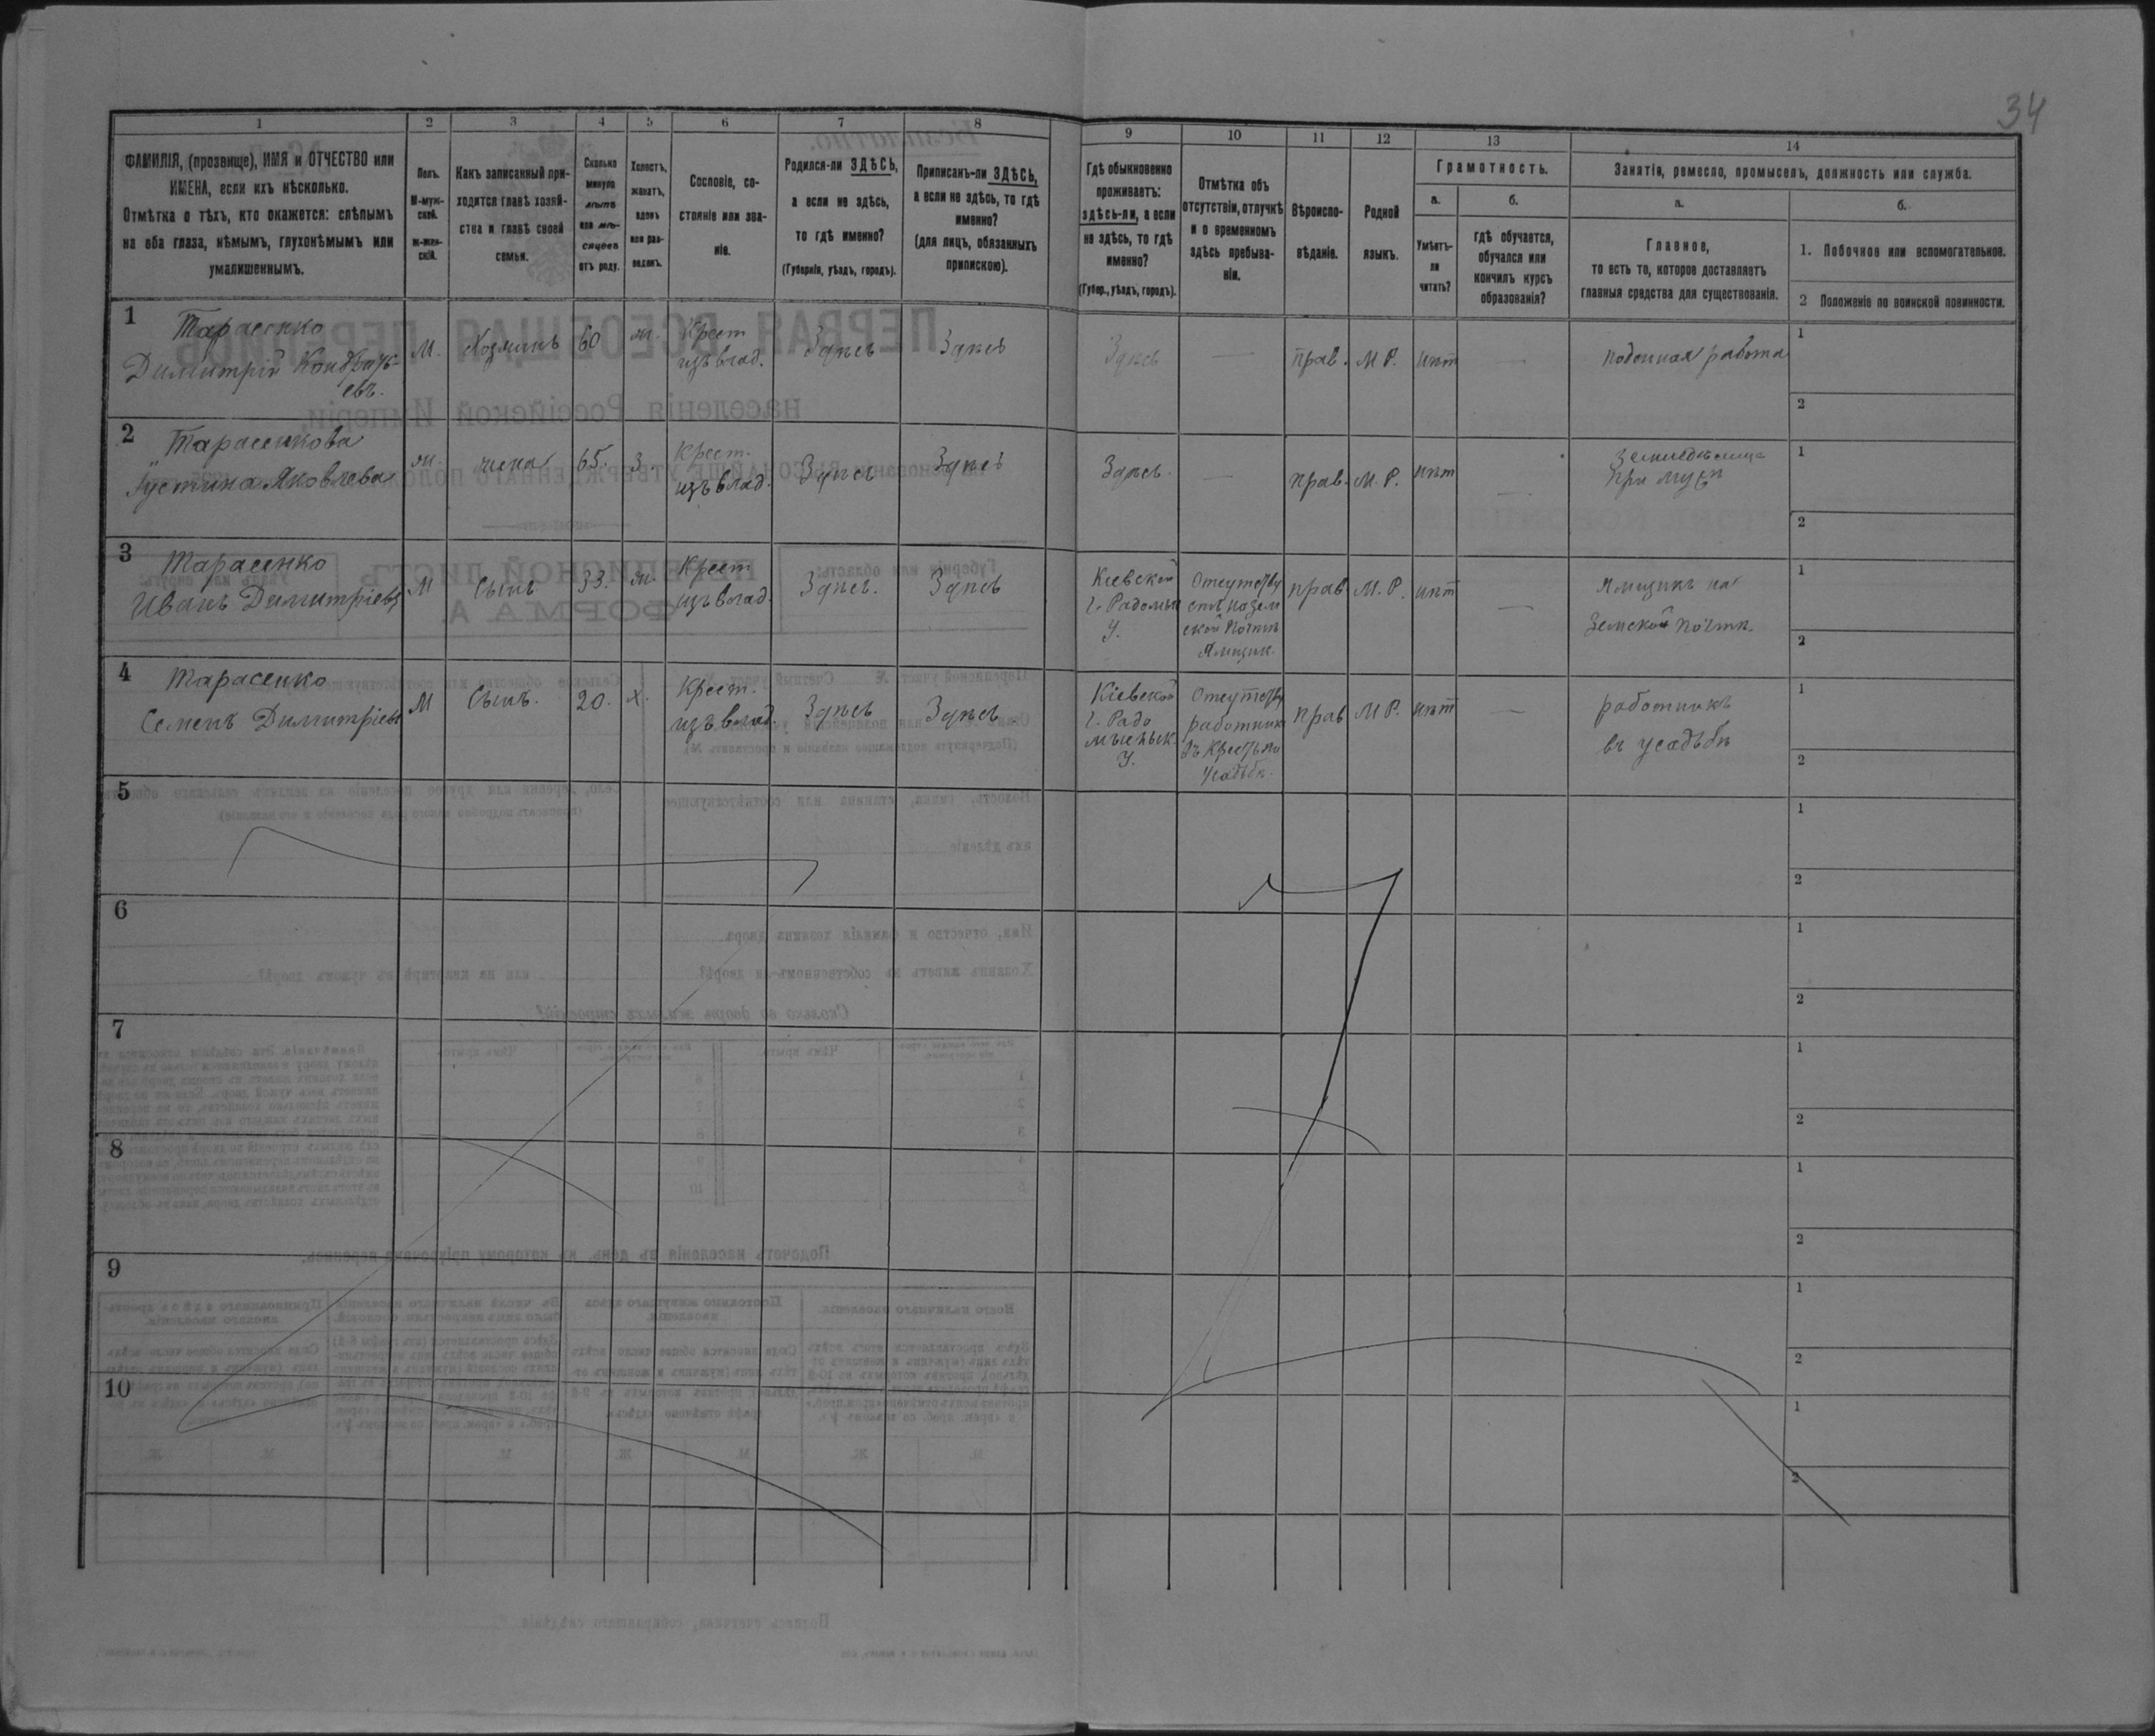 34
1
2
3
4
5
6
7
8
9
10
11
12
13
14
ФАМИЛІЯ, (прозвище), ИМЯ и ОТЧЕСТВО или
ИМЕНА, если ихъ нѣсколько.
Отмѣтка о тѣхъ, кто окажется: слѣпымъ
на оба глаза, нѣмымъ, глухонѣмымъ или
умалишеннымъ.
Полъ.
М-муж-
ской.
ж-жен-
скій.
Какъ записанный при-
ходится главѣ хозяй-
ства и главѣ своей
семьи.
Сколько
минуло
лѣтъ
или мѣ-
сяцевъ
отъ роду.
Холостъ,
женатъ,
вдовъ
или раз-
веденъ.
Сословіе, со-
стояніе или зва-
ніе.
Родился-ли ЗДѢСЬ,
а если не здѣсь,
то гдѣ именно?
(Губернія, уѣздъ, городъ).
Приписанъ-ли ЗДѢСЬ,
а если не здѣсь, то гдѣ
именно?
(для лицъ, обязанныхъ
припискою).
Гдѣ обыкновенно
проживаетъ:
здѣсь-ли, а если
не здѣсь, то гдѣ
именно?
(Губер., уѣздъ, городъ).
Отмѣтка объ
отсутствіи, отлучкѣ
и о временномъ
здѣсь пребыва-
ніи.
Вѣроиспо-
вѣданіе.
Родной
языкъ.
Грамотность.
а.
Умѣетъ-
ли
читать?
б.
гдѣ обучается,
обучался или
кончилъ курсъ
образованія?
Занятіе, ремесло, промыселъ, должность или служба.
а.
Главное,
то есть то, которое доставляетъ
главныя средства для существованія.
б.
1. Побочное или вспомогательное.
2 Положеніе по воинской повинности.
1
Тарасенко
Димитрій Кондрать-
евъ.
М.
Хозяинъ
60
ж.
Крест
изъ влад.
Здѣсь
Здѣсь
Здѣсь
—
прав.
М Р.
нѣт
—
поденная работа
1
2
2
Тарасенкова
Іустина Яковлева
ж.
жена
65.
з.
Крест.
изъ влад.
Здѣсь
Здѣсь
Здѣсь
—
прав.
М. Р.
нѣт
—
при мужѣ
1
2
3
Тарасенко
Иванъ Димитріевъ
М
Сынъ
33.
ж.
Крест
изъ влад.
Здѣсь.
Здѣсь
Кіевской
г. Радомы
У.
Отсутству
етъ на зем
ской почтѣ
Ямщик
прав
М. Р.
нѣт
—
Ямщикъ на
Земской почтѣ.
1
2
4
Тарасенко
Семенъ Димитріевъ
М
Сынъ.
20.
х.
Крест.
изъ влад.
Здѣсь
Здѣсь.
Кіевской
г. Радо
мысльск.
У.
Отсутству
работник
усадьбѣ.
прав
М Р.
нѣт
—
работникъ
въ усадьбѣ
1
2
5
1
2
6
1
2
7
1
2
8
1
2
9
1
2
10
1
2